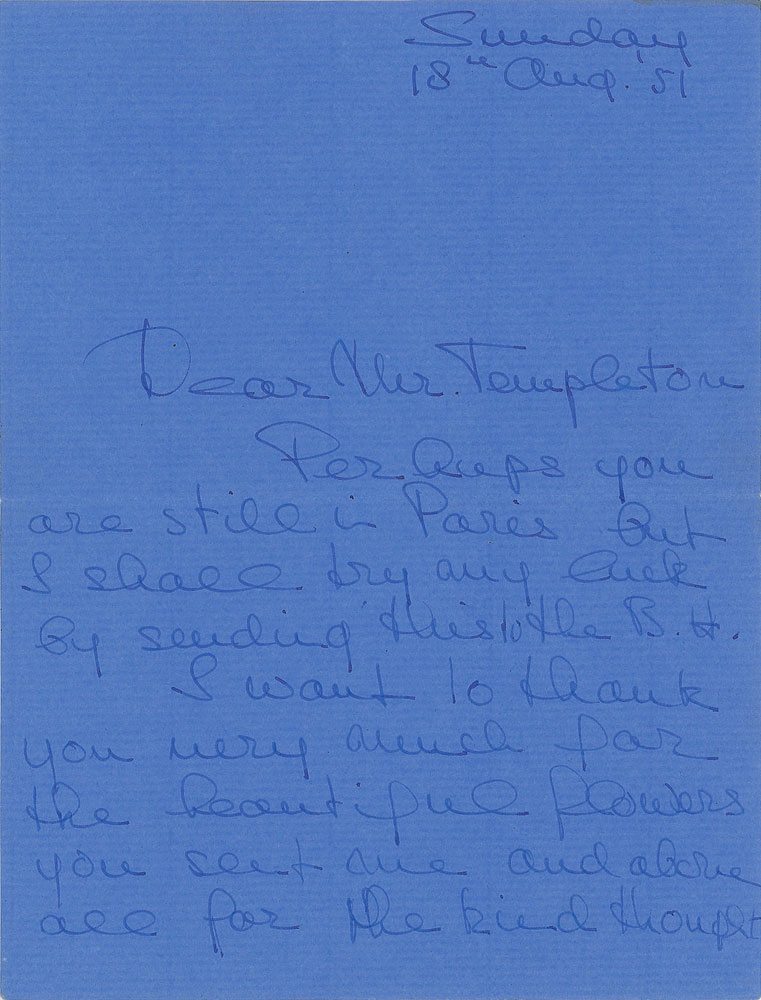 Sunday
18th Aug. '51
Dear Mr. Templeton
Perhaps you
are still in Paris but
I shall try my luck
by sending this to the B. H.
I want to thank
you very much for
the beautiful flowers
you sent me and above
all for the kind thought